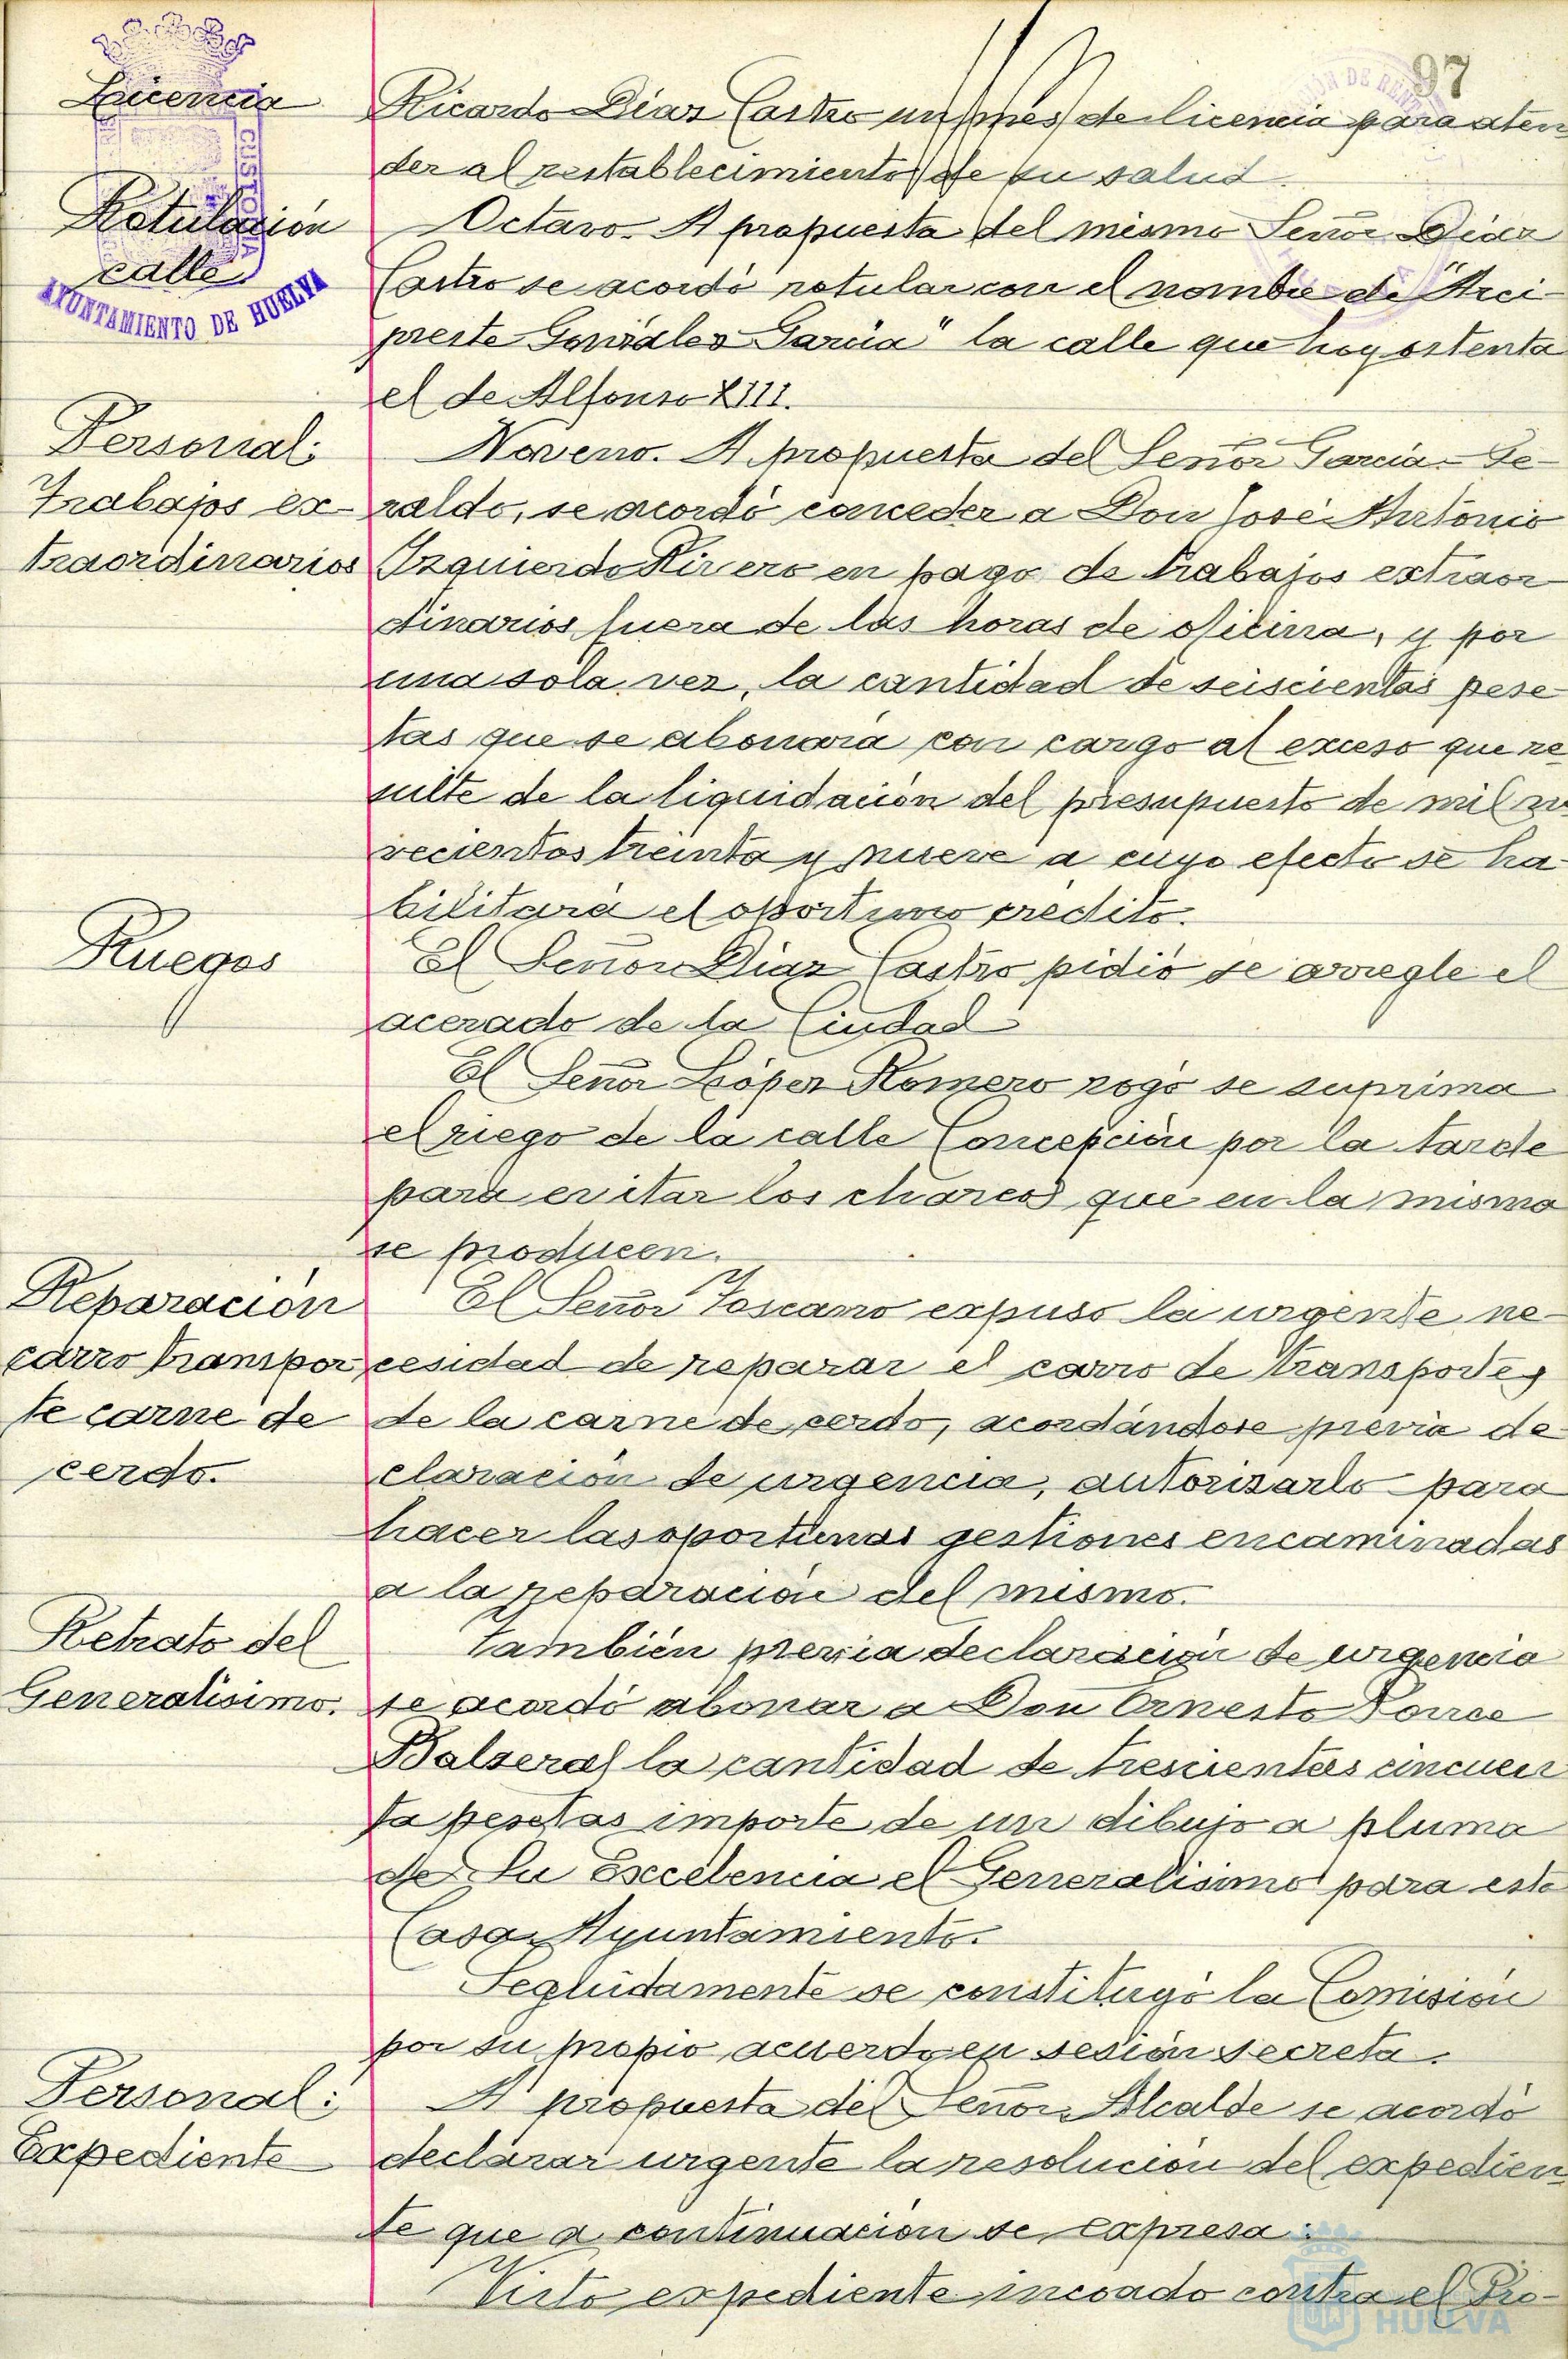 97
Licencia
Ricardo Diaz Castro un mes de licencia para aten
der al restablecimiento de su salud.
Rotulación
calle
AYUNTAMIENTO DE HUELVA
Octavo. A propuesta del mismo Señor Diaz
Castro se acordó rotular con el nombre de "Arci-
preste González García" la calle que hoy ostenta
el de Alfonso XIII.
Personal:
Trabajos ex-
traordinarios
Noveno. A propuesta del Señor Garcia-Ge-
raldo, se acordó conceder a Don José Antonio
Izquierdo Rivero en pago de trabajos extraor
dinarios, fuera de las horas de oficina, y por
una sola vez, la cantidad de seiscientas pese-
tas que se abonará con cargo al exceso que re
sulte de la liquidación del presupuesto de mil no
vecientos treinta y nueve a cuyo efecto se ha-
bilitará el oportuno crédito.
Ruegos
El Señor Diaz Castro pidió se arregle el
acerado de la Ciudad
El Señor López Romero rogó se suprima
el riego de la calle Concepción por la tarde
para evitar los charcos que en la misma
se producen.
Reparación
carro transpor
te carne de
cerdo.
El Señor Toscano expuso la urgente ne-
cesidad de reparar el carro de transportes
de la carne de cerdo, acordándose previa de
claración de urgencia, autorizarlo para
hacer las oportunas gestiones encaminadas
a la reparación del mismo.
Retrato del
Generalísimo.
También previa declaración de urgencia
se acordó abonar a Don Ernesto Ponce
Balseral la cantidad de trescientas cincuen
ta pesetas importe de un dibujo a pluma
de Su Excelencia el Generalísimo para este
Casa Ayuntamiento.
Seguidamente se constituyó la Comisión
por su propio acuerdo en sesión secreta.
Personal:
Expediente
A propuesta del Señor Alcalde se acordó
declarar urgente la resolución del expedien
te que a continuación se expresa:
Visto expediente incoado contra el Pro-
HUELVA